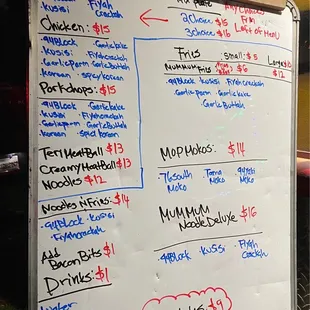 Kusi Fiyah
Crackah
Chicken: $15
94Block Garlickake
Kusi Fiyahcrackah
Garlicparm GarlicButtah
Korean Spicy Korean
Porkchops: $15
94Block Garlickake
Kusi Fiyahcrackah
Garlicparm GarlicButtah
Korean
Teri MeatBall $13
Creamy MeatBall $13
Noodles $12
Noodles N Fries: $14
94Block Kussi
Fiyahcrackah
Add Bacon Bits $1
Drinks: $1
Water
2 Choice $15
3 Choice $16
Left of Menu
Fries
Small: $5
MumMum Fries $6
$12
94Block Kussi Fiyahcrackah
Garlicparm GarlicButtah
Garlickake
MopMokos: $14
76South Moko
Tama Moko
94Yeti Moko
MumMum
Noodle Deluxe $16
94Block Kussi Fiyah
Crackah
$9